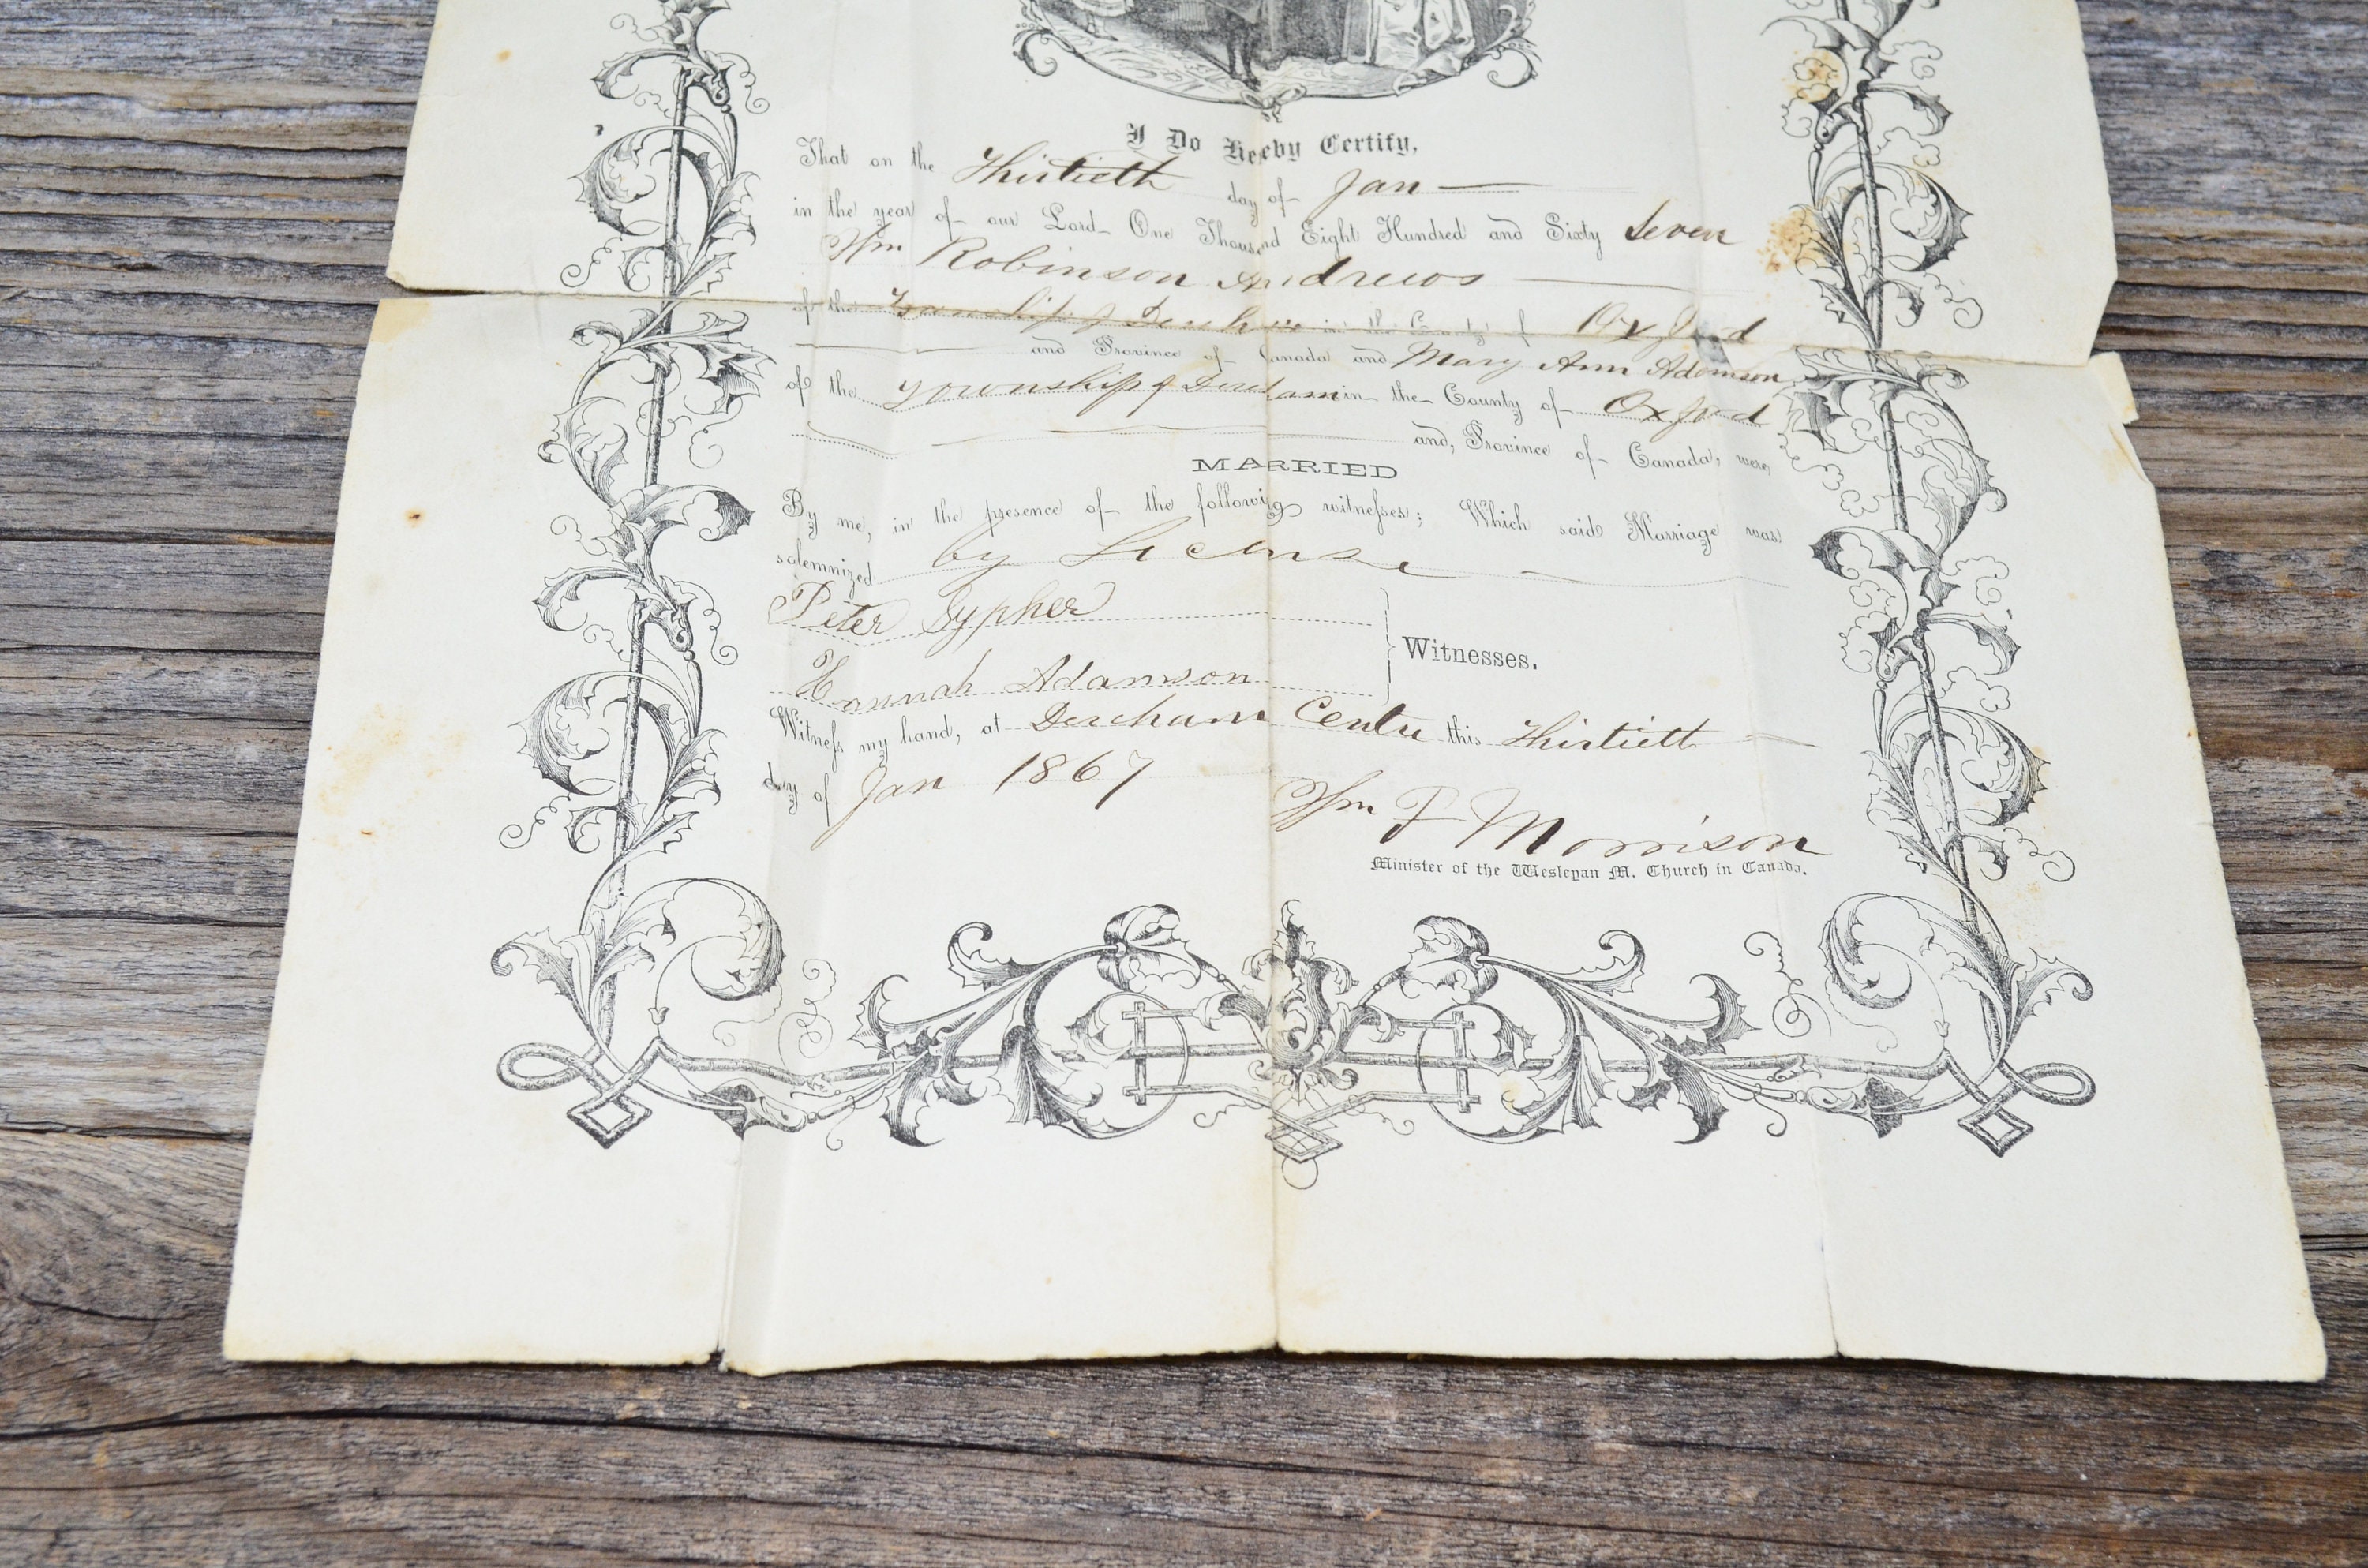 I Do Hereby Certify,
That on the Thirtieth day of Jan
in the year of our Lord One Thousand Eight Hundred and Sixty Seven
Wm Robinson Andrews
of the Township of Dereham in the County of Oxford
and Province of Canada and Mary Ann Adamson
of the Township of Dereham in the County of Oxford
and Province of Canada, were
MARRIED
By me, in the presence of the following witnesses; Which said Marriage was
solemnized by License
Peter Sypher
Hannah Adamson
Witnesses.
Witness my hand, at Dereham Centre this Thirtieth
day of Jan 1867
Wm F Morrison
Minister of the Wesleyan M. Church in Canada.